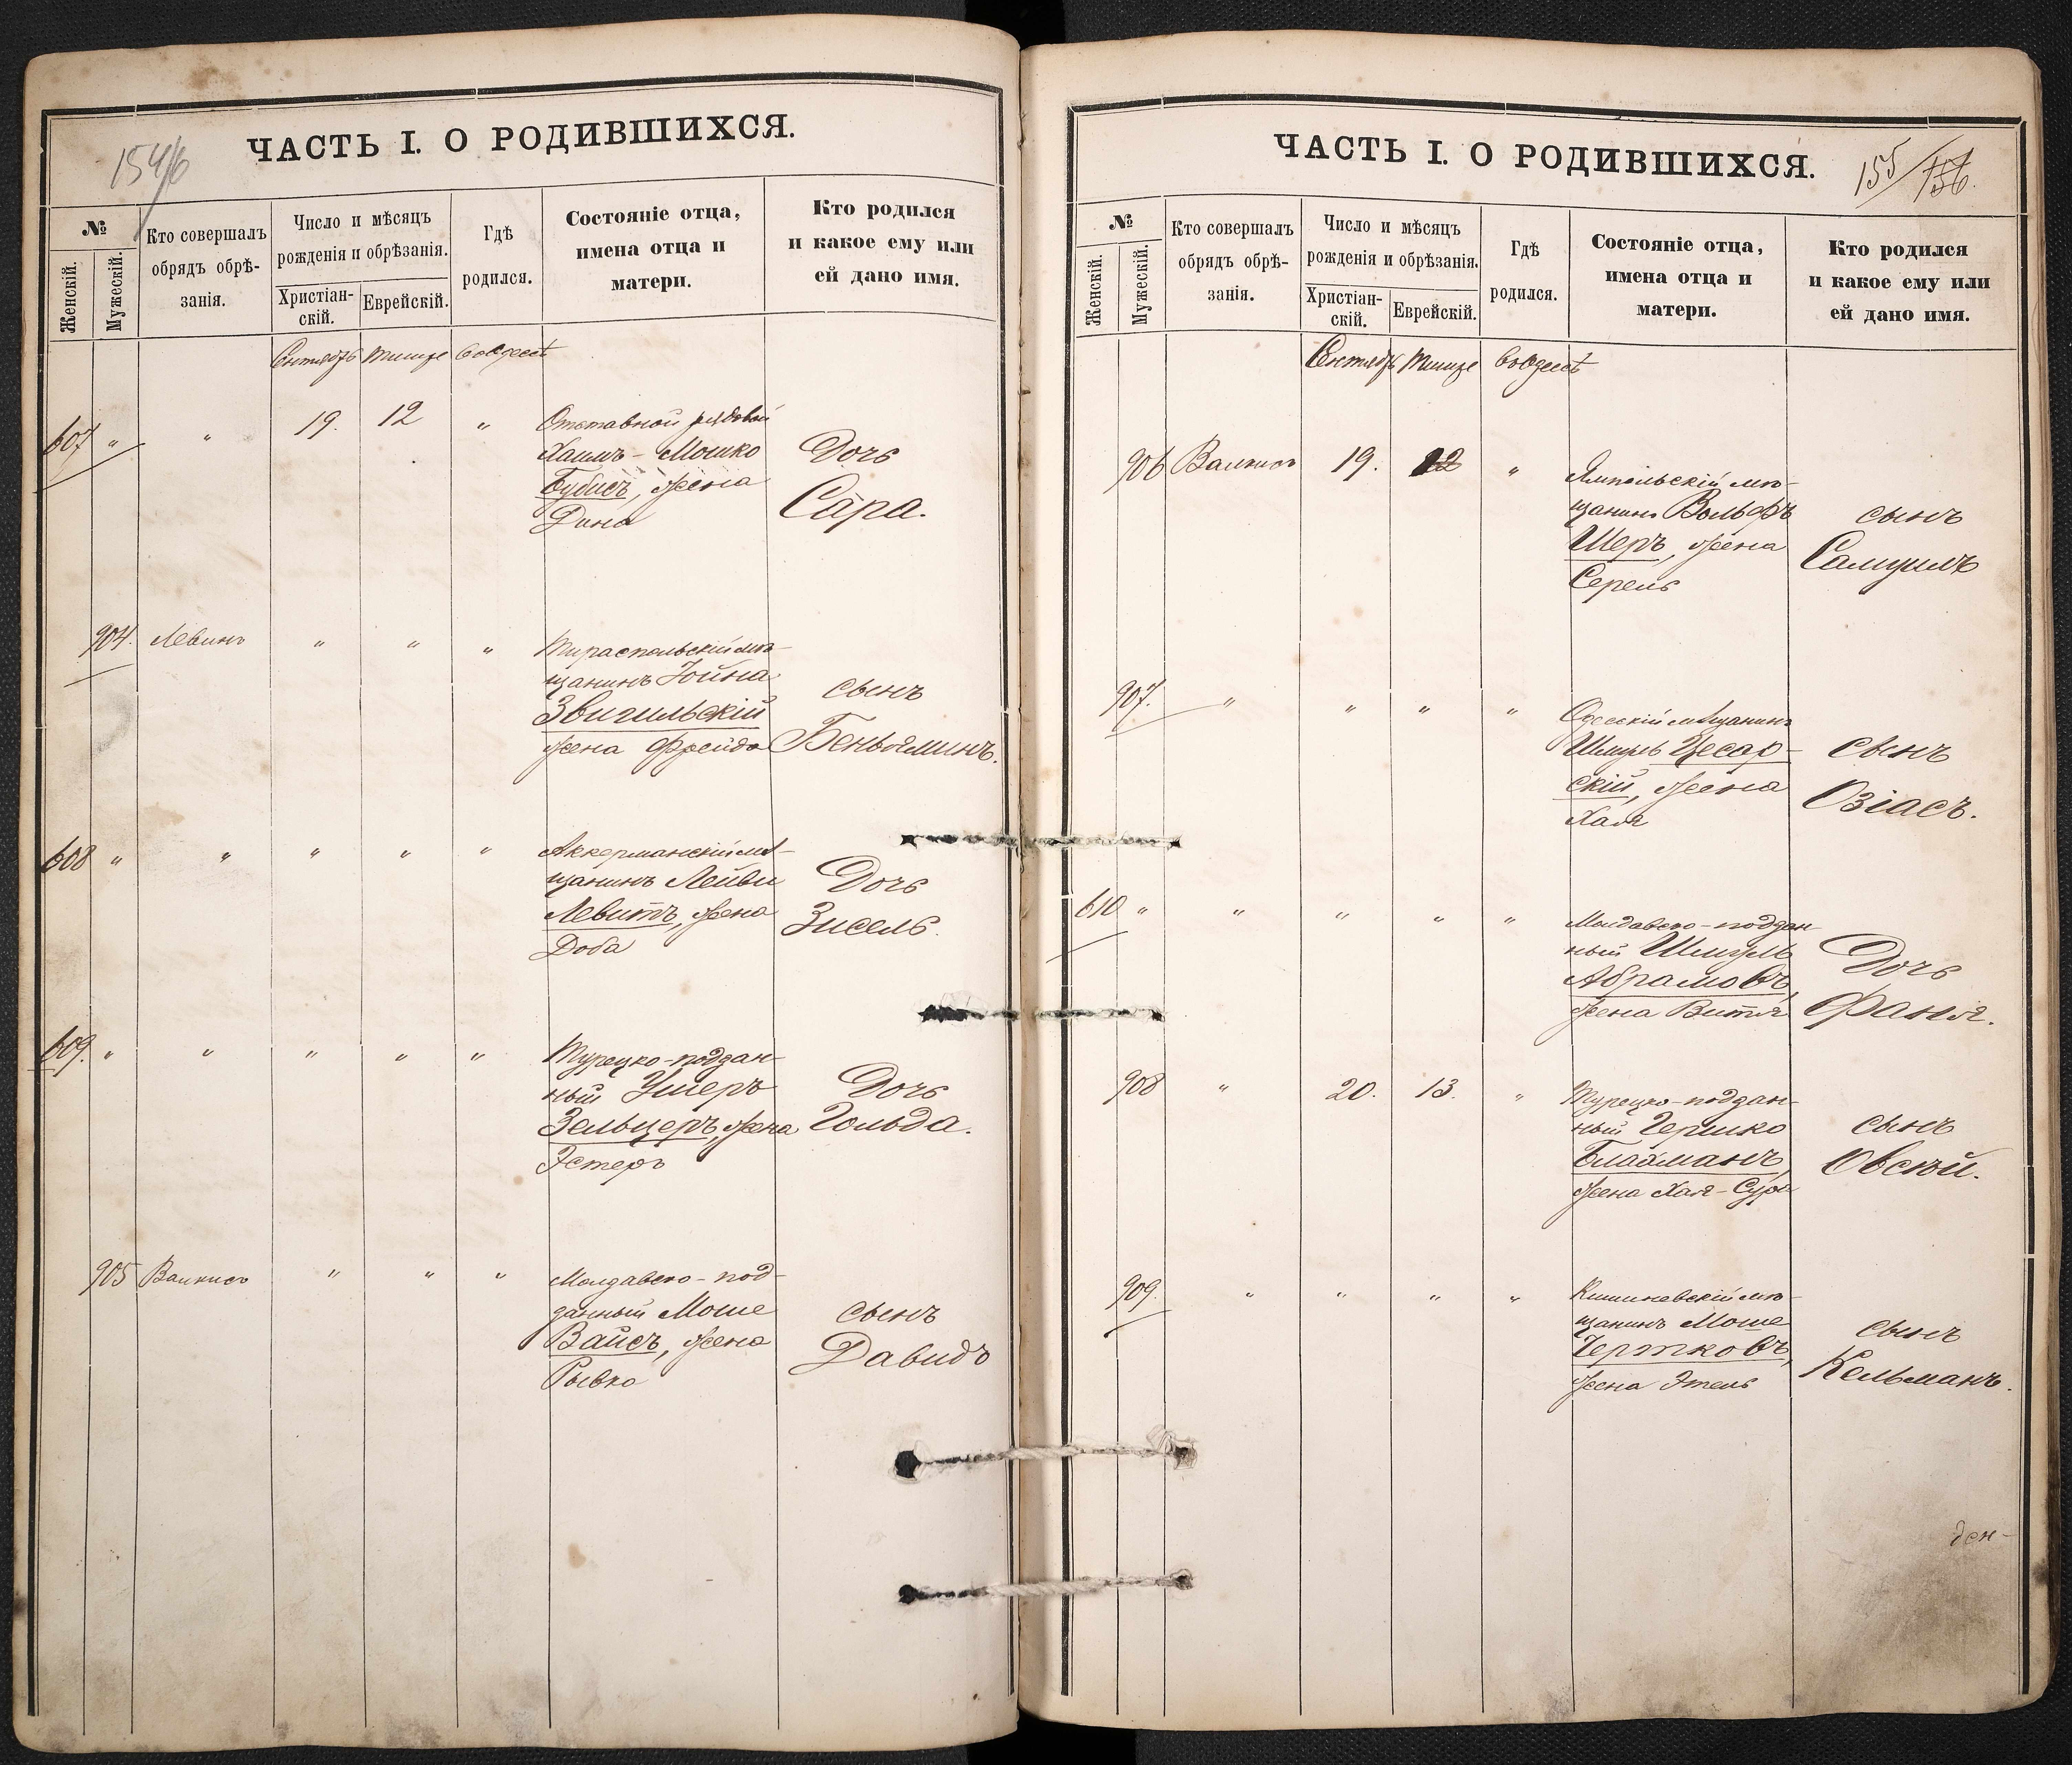 154/6
ЧАСТЬ I. О РОДИВШИХСЯ.
№
Женскій.
Мужескій.
Кто совершалъ
обрядъ обрѣ-
занія.
Число и мѣсяцъ
рожденія и обрѣзанія.
Христіан-
скій.
Еврейскій.
Гдѣ
родился.
Состояніе отца,
имена отца и
матери.
Кто родился
и какое ему или
ей дано имя.
Сентябрь Тишре в Одессѣ
607 " " 19. 12 " Отставной рядовой
Хаимъ-Мошко Дочь
Бубисъ, жена Сара.
Дина
904. Левинъ " " " Тираспольскій мѣ-
щанинъ Іойна сынъ
Звигильскій
жена Фрейда Беньяминъ.
608 " " " " " Аккерманскій мѣ-
щанинъ Лейви Дочь
Левитъ, жена Зисель.
Доба
609. " " " " " Турецко-поддан-
ный Ушеръ Дочь
Зельцеръ, жена Гольда.
Эстеръ
905 Валкисъ " " " Молдавско-под-
данный Моше сынъ
Вайсъ, жена Давидъ
Рывка
ЧАСТЬ I. О РОДИВШИХСЯ.
155/156.
№
Женскій.
Мужескій.
Кто совершалъ
обрядъ обрѣ-
занія.
Число и мѣсяцъ
рожденія и обрѣзанія.
Христіан-
скій.
Еврейскій.
Гдѣ
родился.
Состояніе отца,
имена отца и
матери.
Кто родился
и какое ему или
ей дано имя.
Сентябрь Тишре в Одессѣ
906 Валкисъ 19. 12 " Ямпольскій мѣ-
щанинъ Вольфъ сынъ
Шеръ, жена Самуилъ
Серель
907. " " " " Одесскій мѣщанинъ
Шмуль Цесар- сынъ
скій, жена Озіасъ.
Хая
610 " " " " " Молдавско-поддан
ный Шмуль Дочь
Абрамовъ,
жена Витя Фаня.
908 " 20. 13. " Турецко-поддан-
ный Гершко сынъ
Блахманъ, Овсѣй.
жена Хая-Сура
909. " " " " Кишиневскій мѣ-
щанинъ Моше сынъ
Чертковъ, Кельманъ.
жена Этель